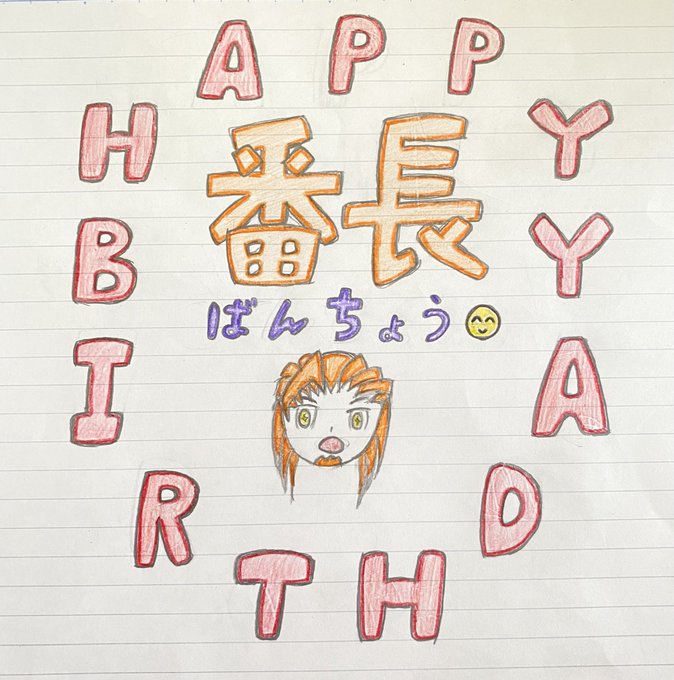 HAPPY
BIRTHDAY
番長
ばんちょう